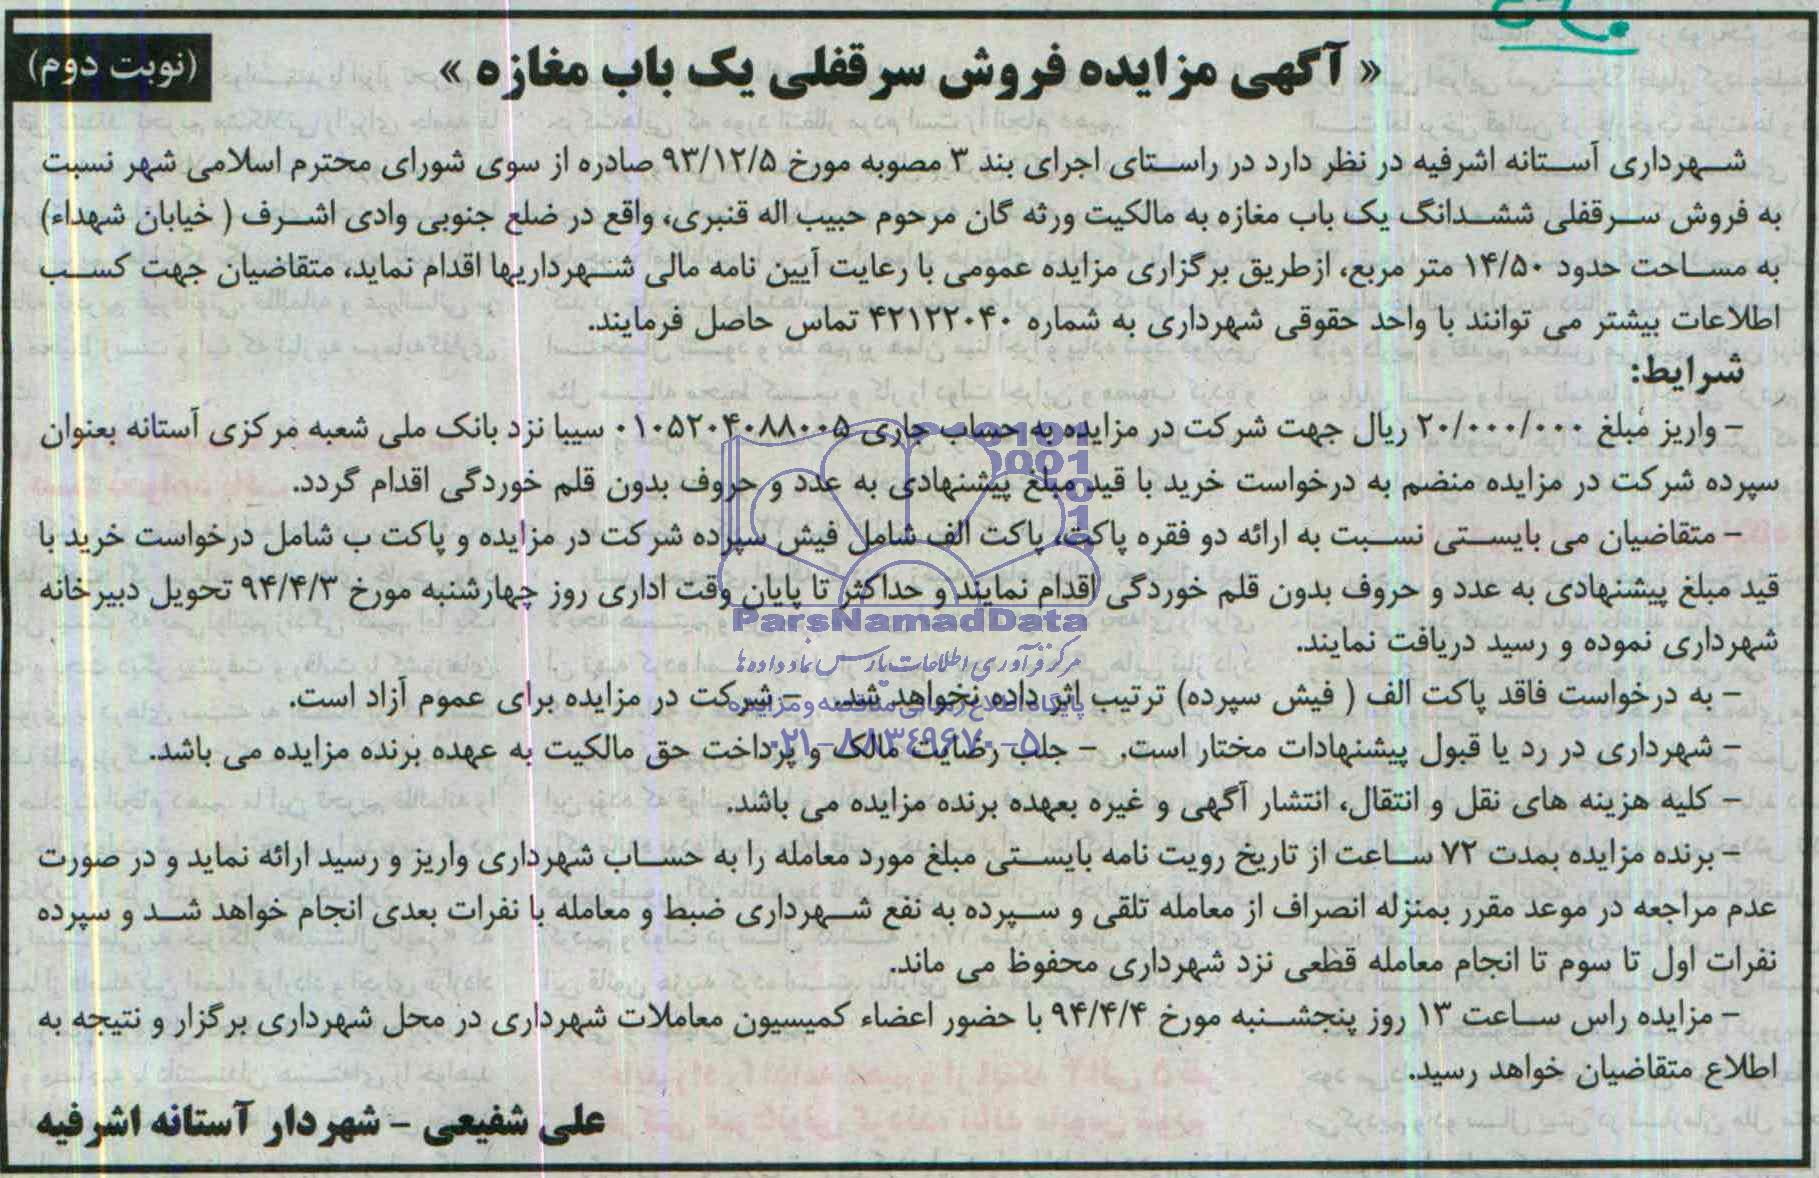 (نوبت دوم)
« آگهی مزایده فروش سرقفلی یک باب مغازه »
شهرداری آستانه اشرفیه در نظر دارد در راستای اجرای بند ۳ مصوبه مورخ ۹۳/۱۲/۵ صادره از سوی شورای محترم اسلامی شهر نسبت
به فروش سرقفلی ششدانگ یک باب مغازه به مالکیت ورثه گان مرحوم حبیب اله قنبری، واقع در ضلع جنوبی وادی اشرف ( خیابان شهداء)
به مساحت حدود ۱۴/۵۰ متر مربع، ازطریق برگزاری مزایده عمومی با رعایت آیین نامه مالی شهرداریها اقدام نماید، متقاضیان جهت کسب
اطلاعات بیشتر می توانند با واحد حقوقی شهرداری به شماره ۴۲۱۲۲۰۴۰ تماس حاصل فرمایند.
شرایط:
- واریز مبلغ ۲۰/۰۰۰/۰۰۰ ریال جهت شرکت در مزایده به حساب جاری ۰۱۰۵۲۰۴۰۸۸۰۰۵ سیبا نزد بانک ملی شعبه مرکزی آستانه بعنوان
سپرده شرکت در مزایده منضم به درخواست خرید با قید مبلغ پیشنهادی به عدد و حروف بدون قلم خوردگی اقدام گردد.
- متقاضیان می بایستی نسبت به ارائه دو فقره پاکت، پاکت الف شامل فیش سپرده شرکت در مزایده و پاکت ب شامل درخواست خرید با
قید مبلغ پیشنهادی به عدد و حروف بدون قلم خوردگی اقدام نمایند و حداکثر تا پایان وقت اداری روز چهارشنبه مورخ ۹۴/۴/۳ تحویل دبیرخانه
ParsNamadData
شهرداری نموده و رسید دریافت نمایند.
مرکز فرآوری اطلاعات پارس نماد داده ها
- به درخواست فاقد پاکت الف ( فیش سپرده) ترتیب اثر داده نخواهد شد. - شرکت در مزایده برای عموم آزاد است.
پایگاه اطلاع رسانی مناقصه و مزایده
- شهرداری در رد یا قبول پیشنهادات مختار است. - جلب رضایت مالک و پرداخت حق مالکیت به عهده برنده مزایده می باشد.
۰۲۱-۸۸۳۴۹۶۷۰-۵
- کلیه هزینه های نقل و انتقال، انتشار آگهی و غیره بعهده برنده مزایده می باشد.
- برنده مزایده بمدت ۷۲ ساعت از تاریخ رویت نامه بایستی مبلغ مورد معامله را به حساب شهرداری واریز و رسید ارائه نماید و در صورت
عدم مراجعه در موعد مقرر بمنزله انصراف از معامله تلقی و سپرده به نفع شهرداری ضبط و معامله با نفرات بعدی انجام خواهد شد و سپرده
نفرات اول تا سوم تا انجام معامله قطعی نزد شهرداری محفوظ می ماند.
- مزایده راس ساعت ۱۳ روز پنجشنبه مورخ ۹۴/۴/۴ با حضور اعضاء کمیسیون معاملات شهرداری در محل شهرداری برگزار و نتیجه به
اطلاع متقاضیان خواهد رسید.
علی شفیعی - شهردار آستانه اشرفیه